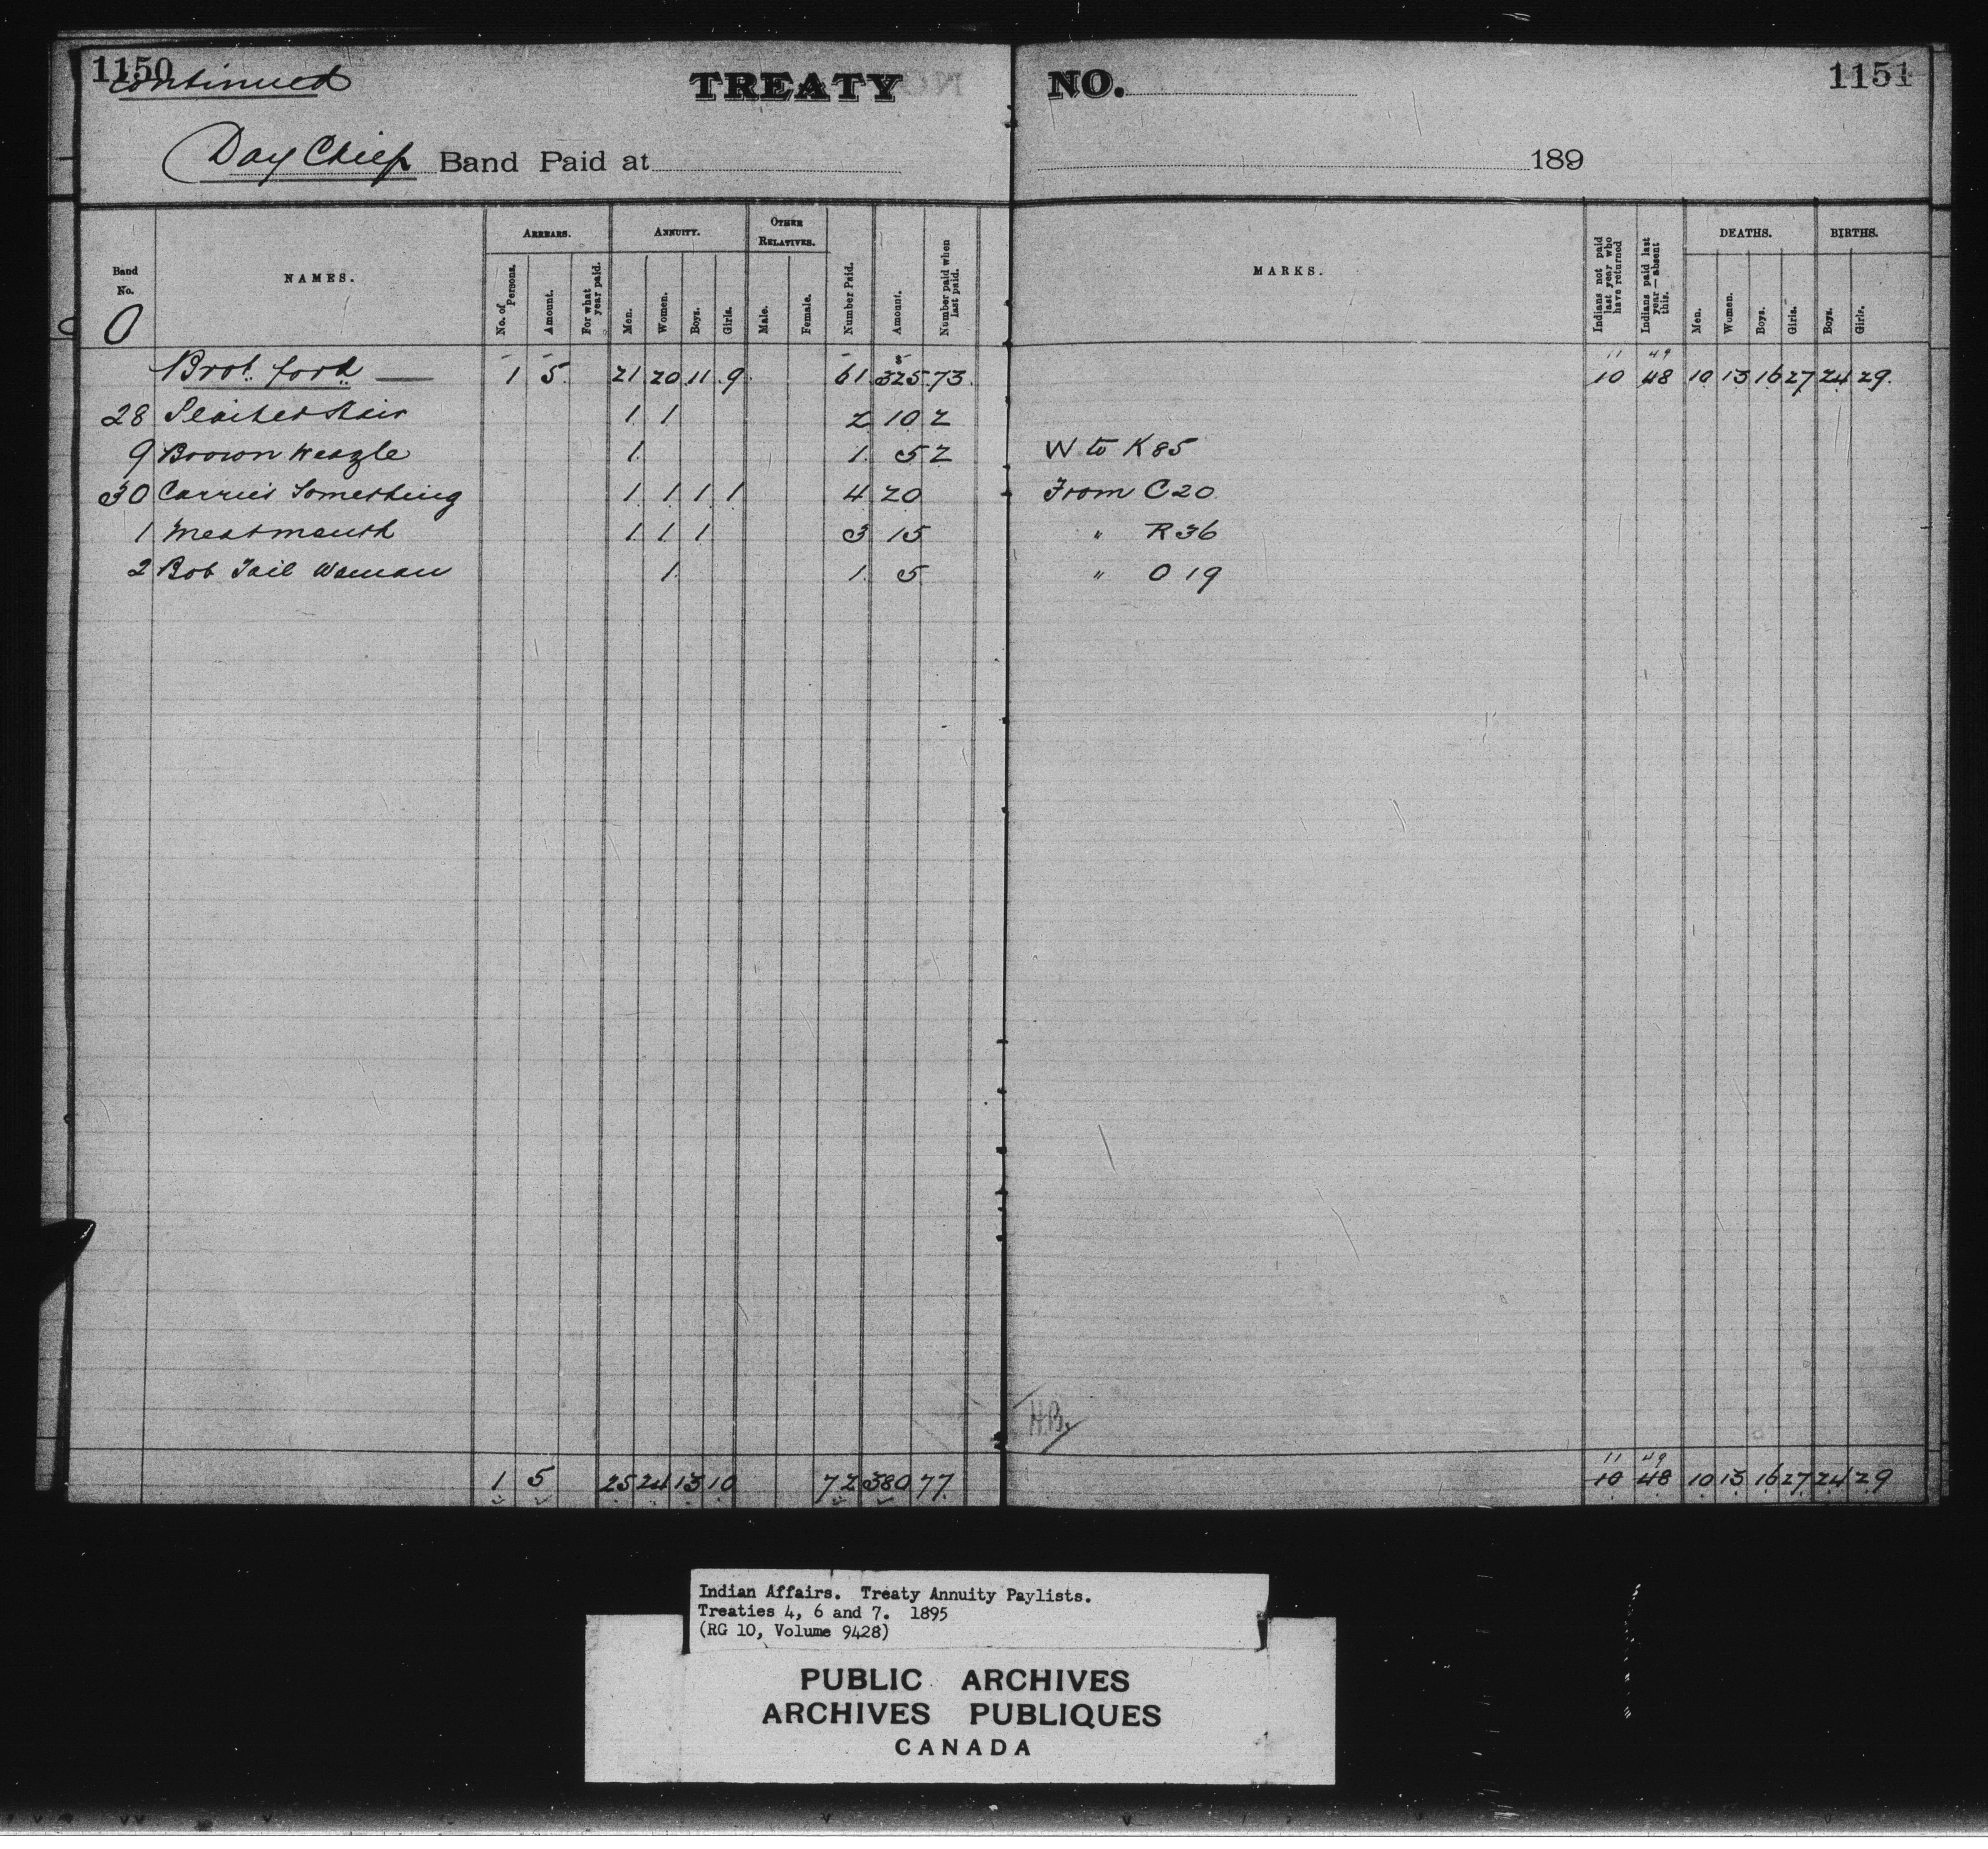 1150 TREATY NO. 1151
Continued
Day Chief Band Paid at 189
Band No. NAMES. ARREARS. ANNUITY. OTHER RELATIVES. Number Paid. Amount. Number paid when last paid. MARKS. Indians not paid last year who have returned Indians paid last year—absent this. DEATHS. BIRTHS.
No. of Persons. Amount. For what year paid. Men. Women. Boys. Girls. Male. Female. Men. Women. Boys. Girls. Boys. Girls.
O
11 49
Brot. ford 1 5 21 20 11 9 61 $325 73 10 48 10 13 16 27 24 29
28 Plaited Hair 1 1 2 10 2
9 Brown Weazle 1 1 5 2 W to K85
30 Carries Something 1 1 1 1 4 20 From C20
1 Meatmouth 1 1 1 3 15 " R36
2 Bob Tail Woman 1 1 5 " O 19
H.B.
11 49
1 5 25 24 13 10 72 380 77 10 48 10 13 16 27 24 29
Indian Affairs. Treaty Annuity Paylists.
Treaties 4, 6 and 7. 1895
(RG 10, Volume 9428)
PUBLIC ARCHIVES
ARCHIVES PUBLIQUES
CANADA